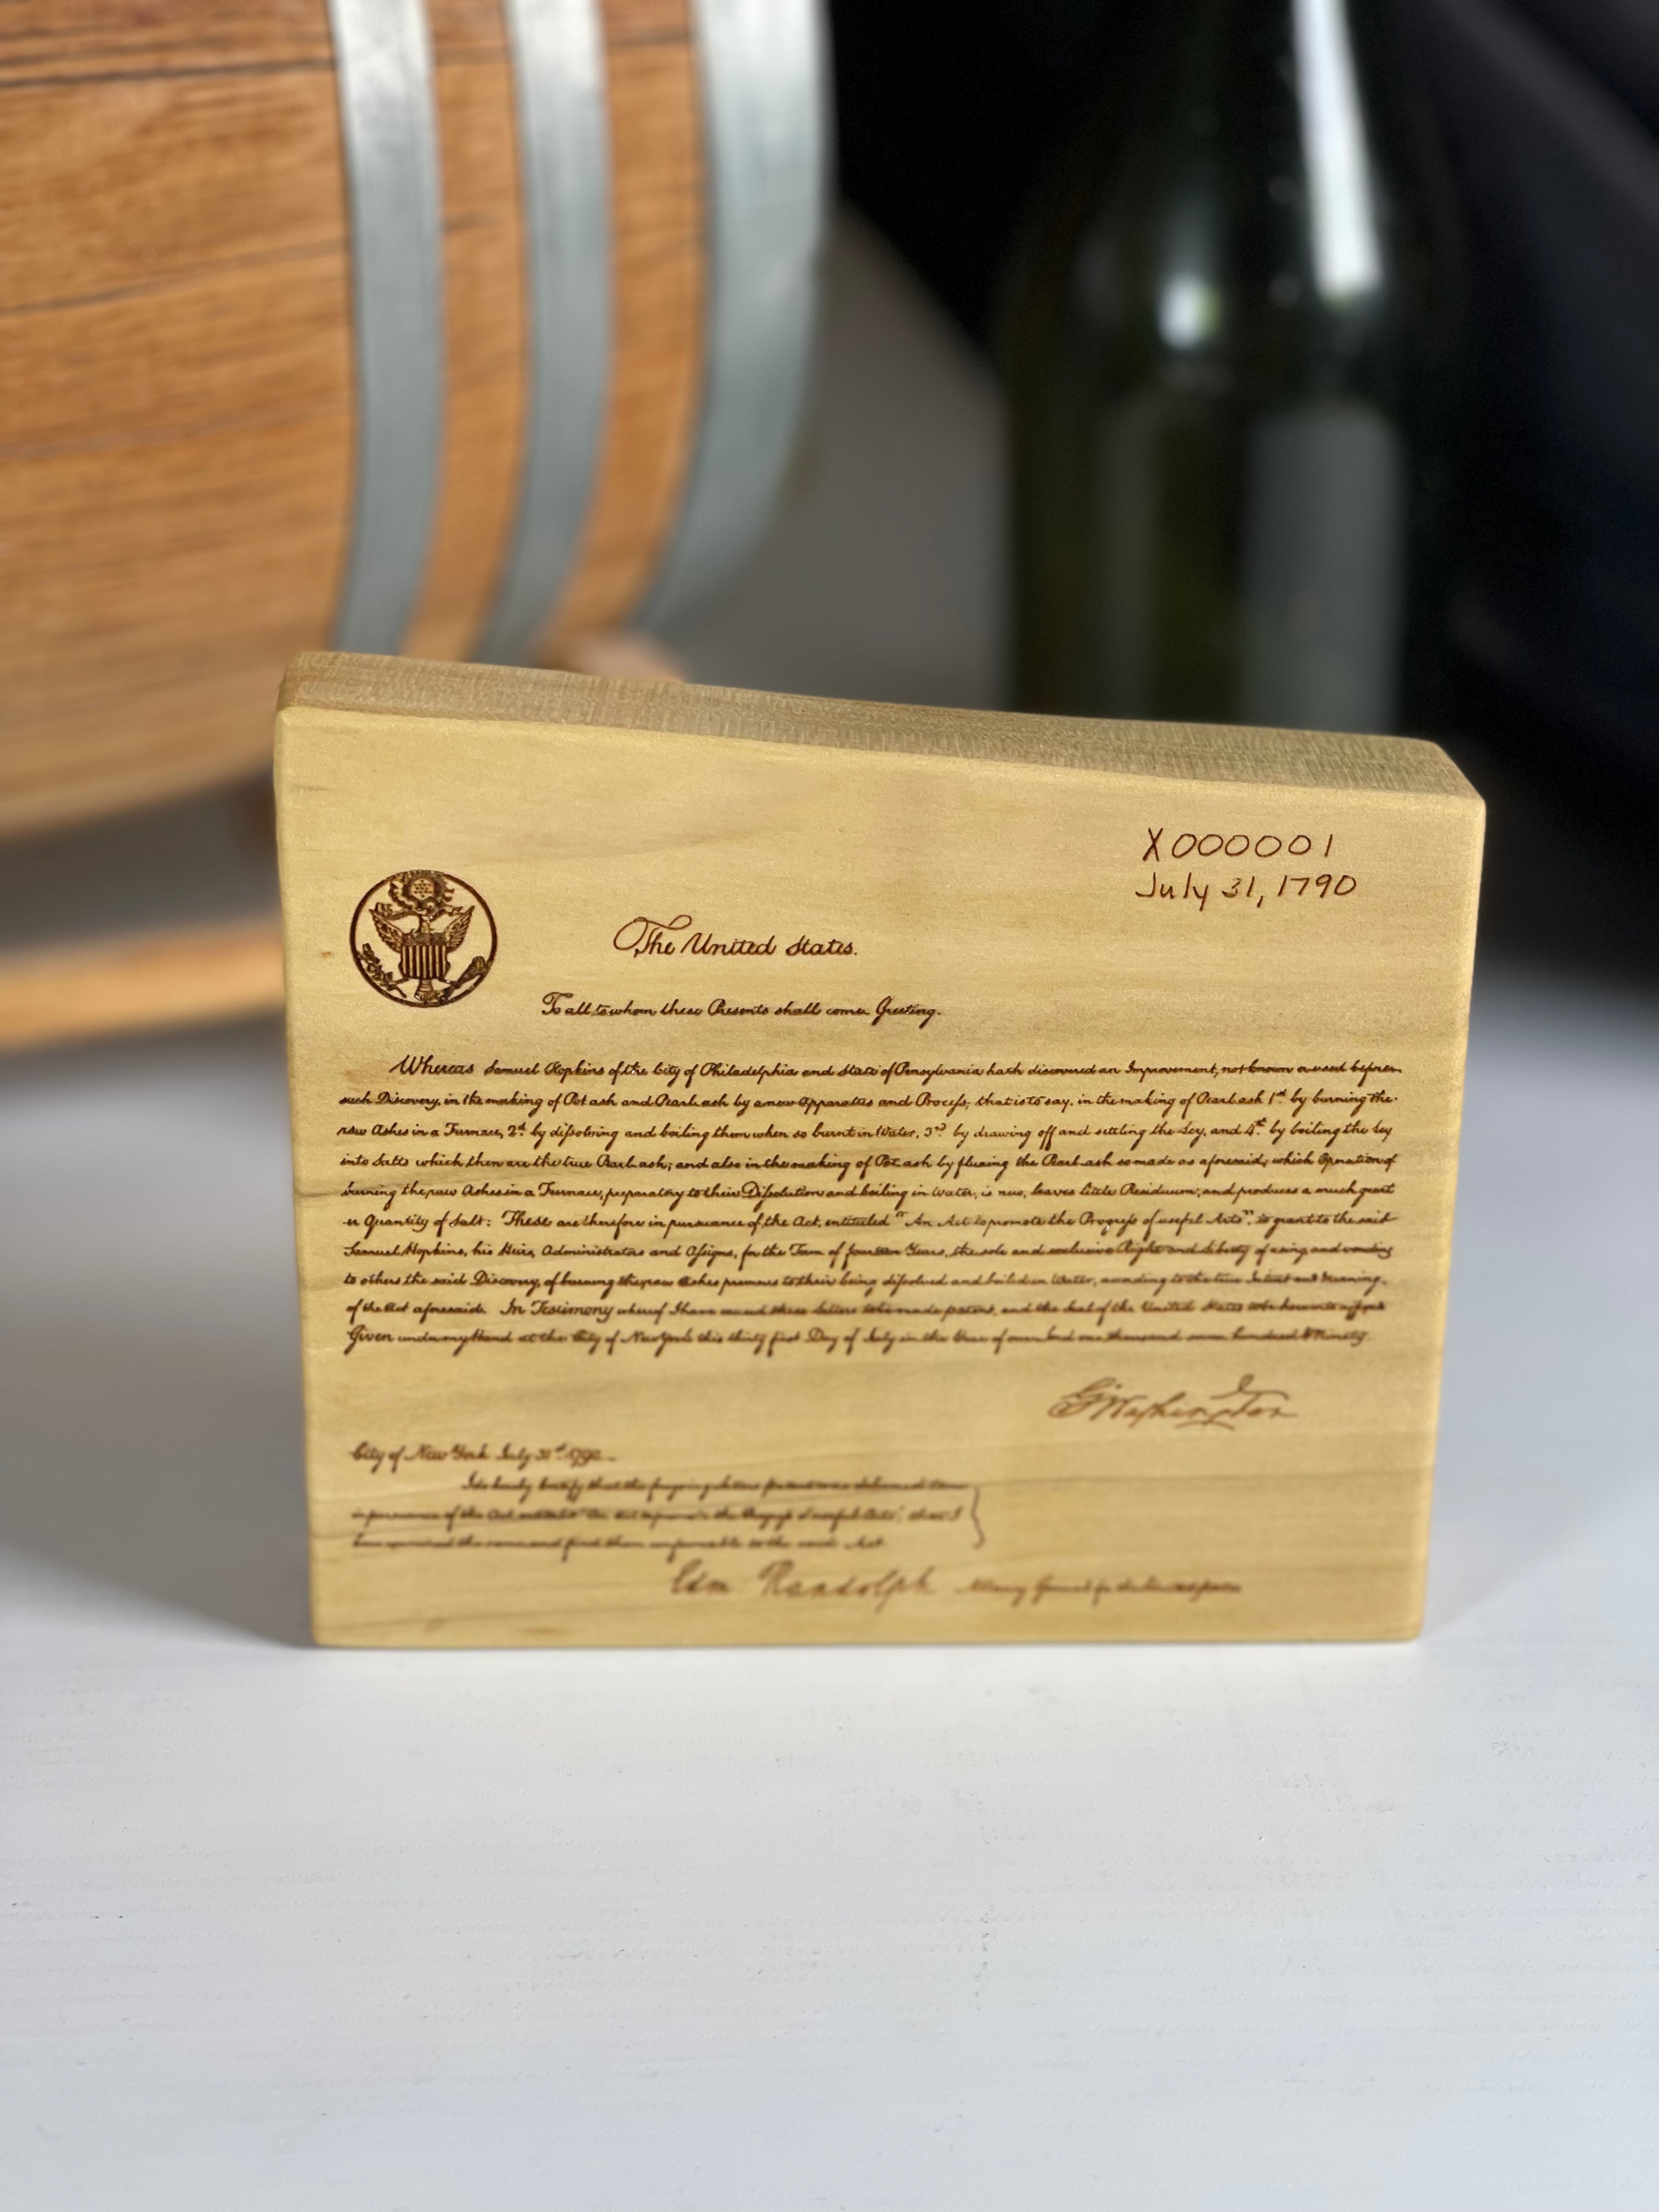 X000001
July 31, 1790
The United States.
To all to whom these Presents shall come Greeting.
Whereas Samuel Hopkins of the City of Philadelphia and State of Pensylvania hath discovered an Improvement, not known or used before
such Discovery, in the making of Pot ash and Pearl ash by a new Apparatus and Process; that is to say, in the making of Pearl ash 1st by burning the
raw Ashes in a Furnace, 2d by dissolving and boiling them when so burnt in Water, 3rd by drawing off and settling the Ley, and 4th by boiling the Ley
into Salts which then are the true Pearl ash; and also in the making of Pot ash by fluxing the Pearl ash so made as aforesaid; which Operation of
burning the raw Ashes in a Furnace, preparatory to their Dissolution and boiling in Water, is new, leaves little Residuum; and produces a much great
er Quantity of Salt: These are therefore in pursuance of the Act, entituled "An Act to promote the Progress of useful Arts", to grant to the said
Samuel Hopkins, his Heirs, Administrators and Assigns, for the Term of fourteen Years, the sole and exclusive Right and Liberty of using and vending
to others the said Discovery, of burning the raw Ashes previous to their being dissolved and boiled in Water, according to the true Intent and Meaning
of the Act aforesaid. In Testimony whereof I have caused these Letters to be made patent, and the Seal of the United States to be hereunto affixed
Given under my Hand at the City of New York this thirty first Day of July in the Year of our Lord one thousand seven hundred & Ninety.
G Washington
City of New York July 31st 1790.
I do hereby Certify that the foregoing Letters patent were delivered to me
in pursuance of the Act entituled "An Act to promote the Progress of useful Arts"; that I
have examined the same and find them conformable to the said Act.
Edm Randolph Attorney General for the United States